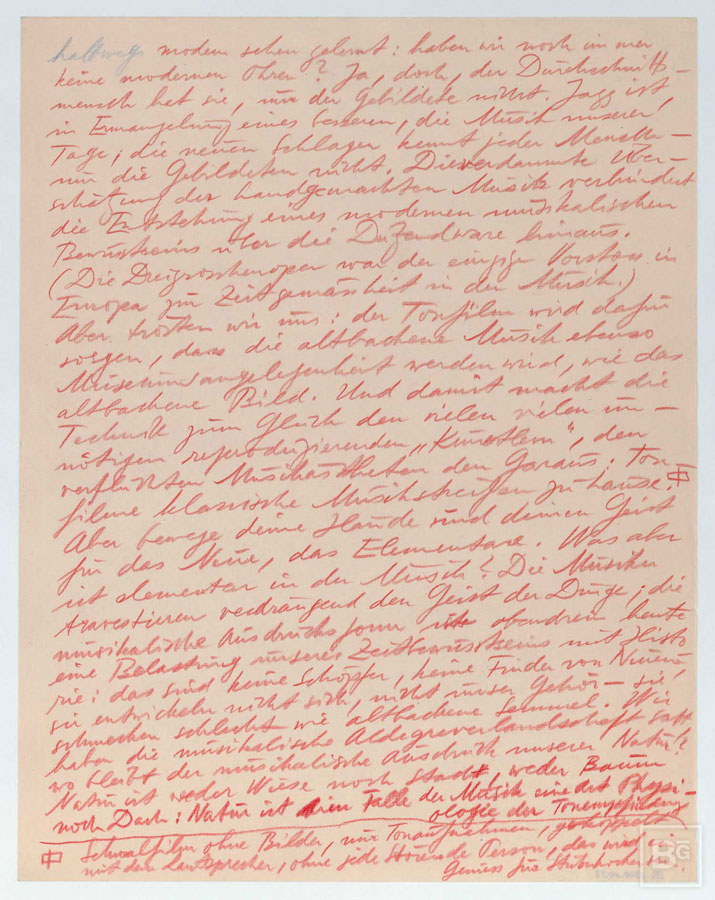 halbwegs modern sehen gelernt: haben wir noch immer
keine modernen Ohren? Ja, doch, der Durchschnitts-
mensch hat sie, nur der Gebildete nicht. Jazz ist,
in Ermangelung eines besseren, die Musik unserer
Tage; die neuen Schlager kennt jeder Mensch –
nur die Gebildeten nicht. Die verdammte Über-
schätzung der handgemachten Musik verhindert
die Entstehung eines modernen musikalischen
Bewusstseins über die Dutzendware hinaus.
(Die Dreigroschenoper war der einzige Vorstoss in
Europa zur Zeitgemässheit in der Musik.)
Aber trösten wir uns: der Tonfilm wird dafür
sorgen, dass die altbachene Musik ebenso
Museumsangelegenheit werden wird, wie das
altbachene Bild. Und damit macht die
Technik zum Glück den vielen vielen un-
nötigen reproduzierenden „Künstlern", den
verfluchten Musikästheten den Garaus: Ton-
filme klassische Musikstreifen zu hause.
Aber bewege deine Hände und deinen Geist
für das Neue, das Elementare. Was aber
ist elementar in der Musik? Die Musiker
travestieren verdrängend den Geist der Dinge; die
musikalische Ausdrucksform ist obendrein heute
eine Belastung unseres Zeitbewusstseins mit Histo
rie: das sind keine Schöpfer, keine Finder von Neuem,
sie entwickeln nicht sich, nicht unser Gehör – sie
schmecken schlecht wie altbachene Semmel. Wir
haben die musikalische Aldegreverlandschaft satt
wo bleibt der musikalische Ausdruck unserer Natur?
Natur ist weder Wiese noch Stadt, weder Baum
noch Dach: Natur ist im Falle der Musik eine Art Physi-
ologie der Tonempfindung
Schmalfilm ohne Bilder, nur Tonaufnahmen, gekoppelt
mit dem Lautsprecher, ohne jede störende Person, das wird ein
Genuss für Stubenhocker sein.
BG